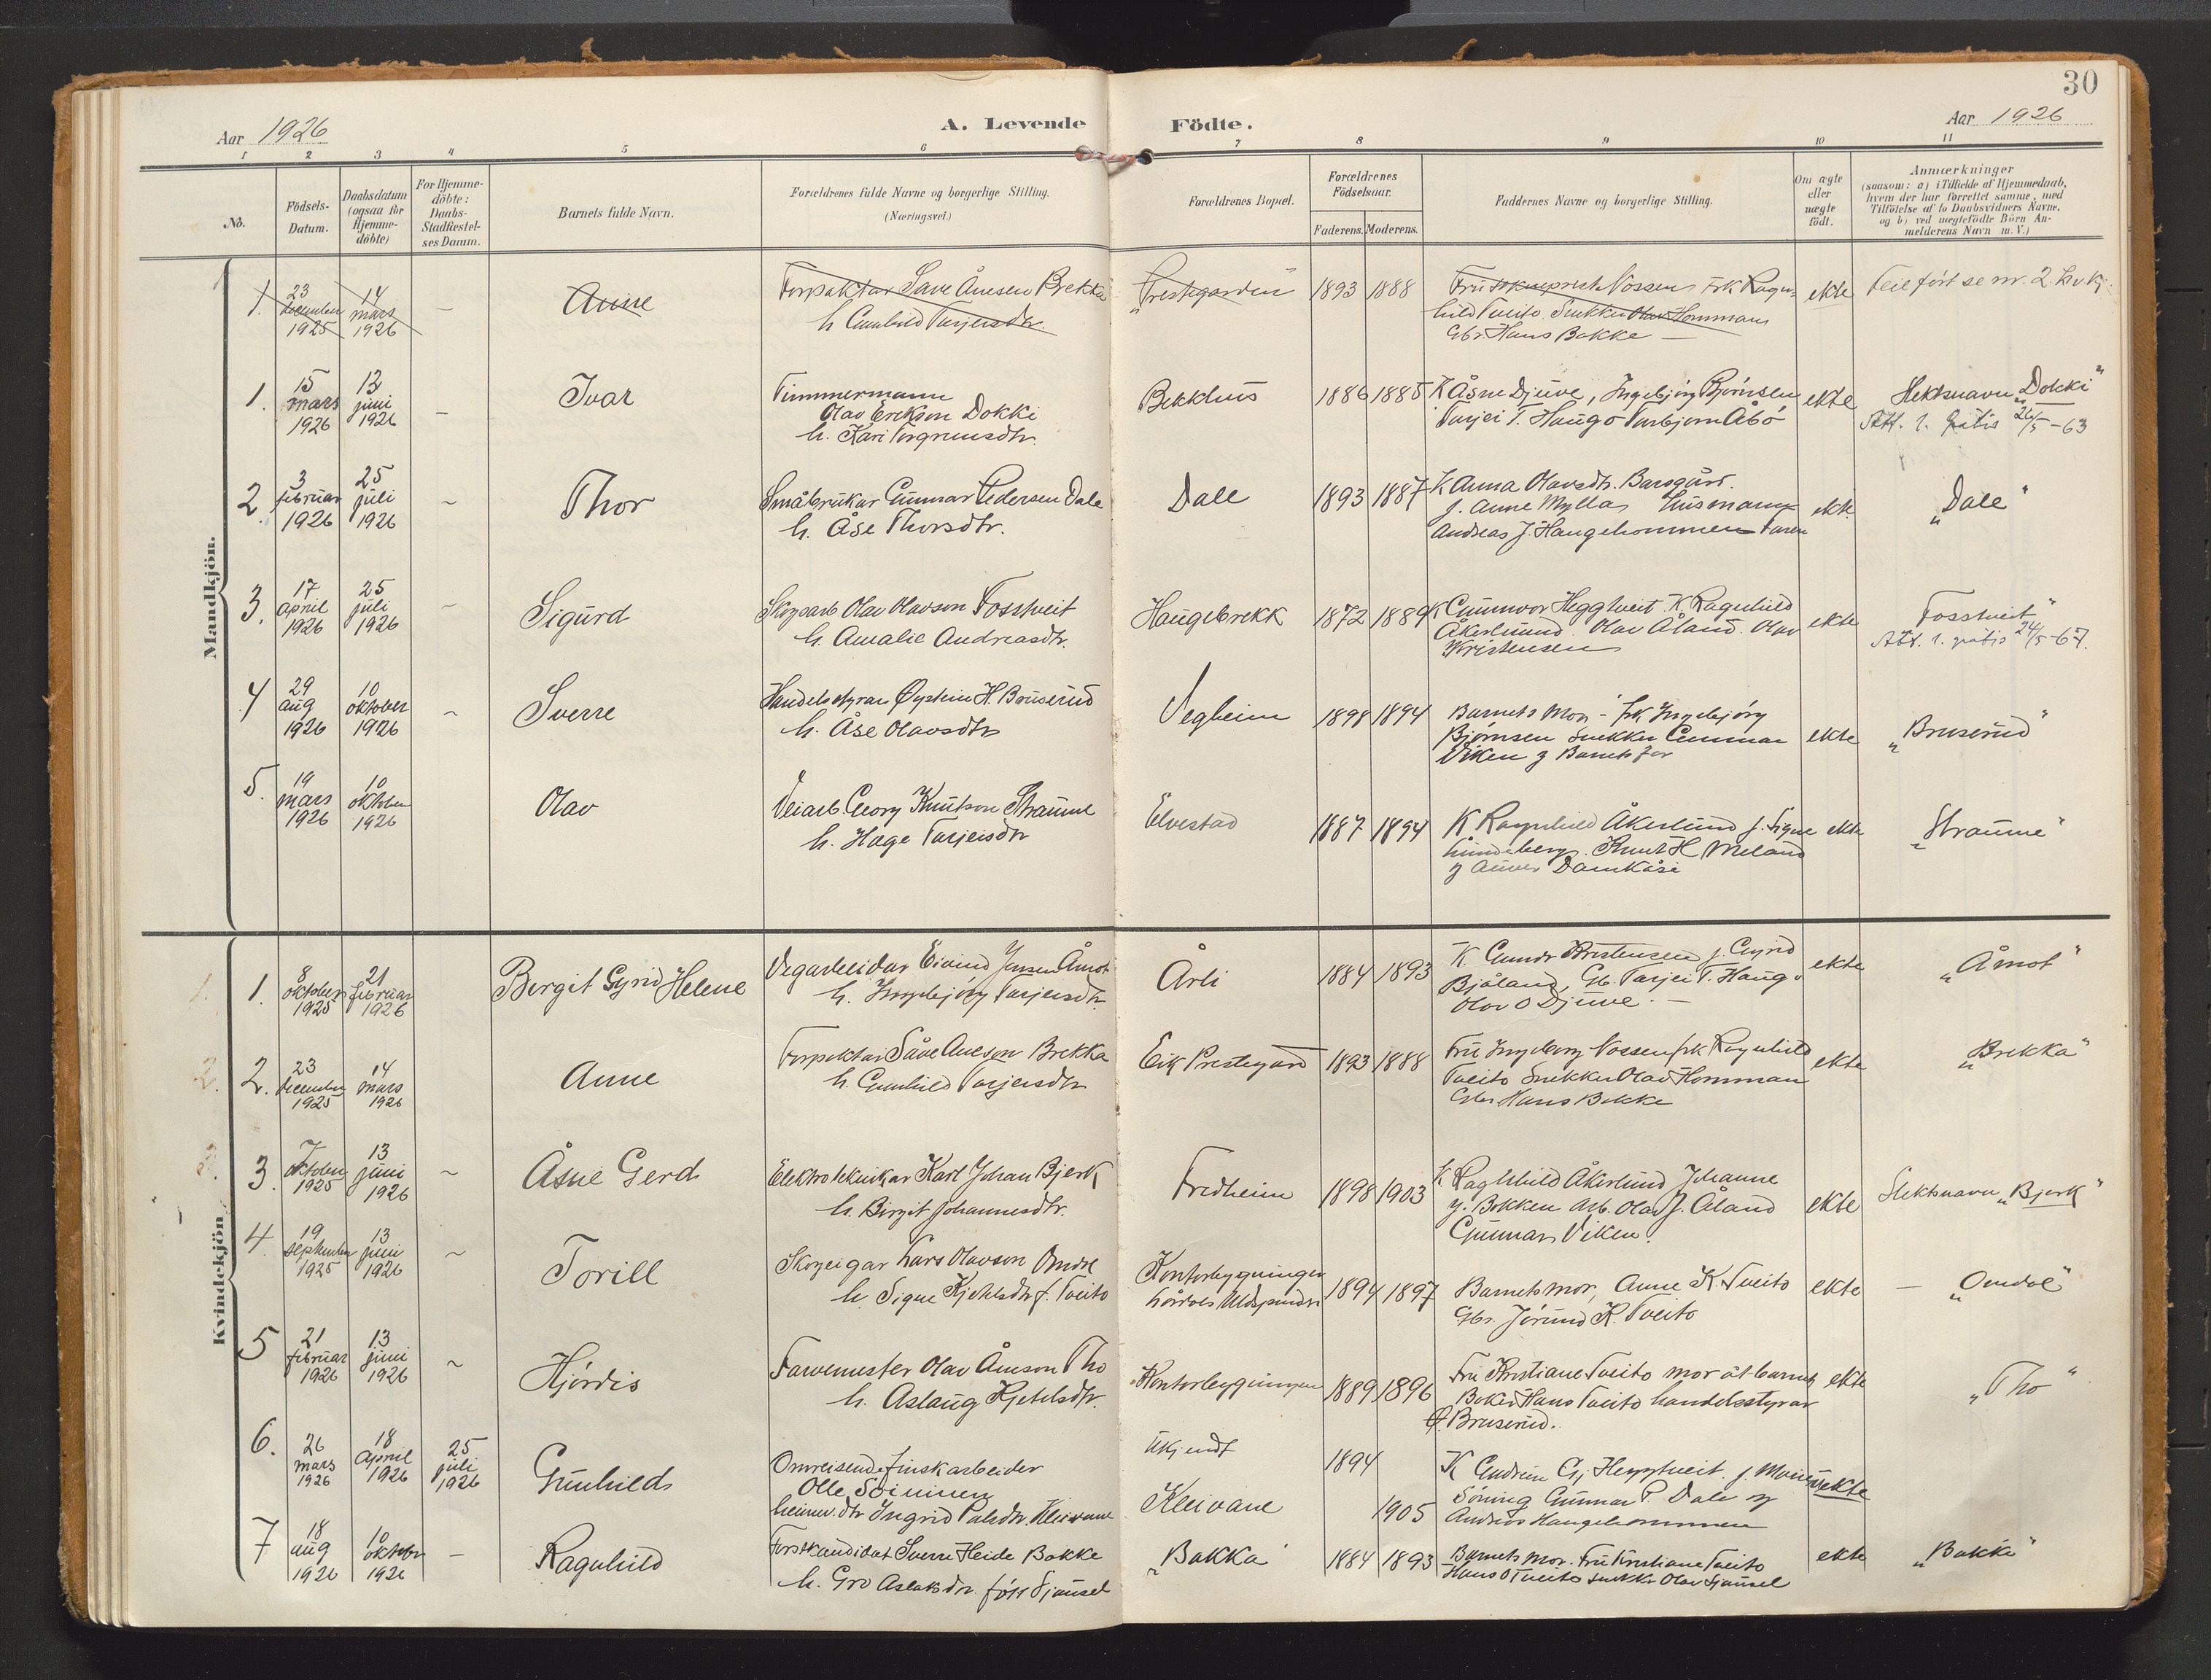 30
Aar 1926
A. Levende Födte.
Aar 1926
1 2 3 4 5 6 7 8 9 10 11
No.
Födsels-
Datum.
Daabsdatum
(ogsaa for
Hjemme-
döbte)
For Hjemme-
döbte:
Daabs-
Stadfæstel-
ses Datum.
Barnets fulde Navn.
Forældrenes fulde Navne og borgerlige Stilling.
(Næringsvei.)
Forældrenes Bopæl.
Forældrenes
Födselsaar.
Faderens. Moderens.
Faddernes Navne og borgerlige Stilling.
Om ægte
eller
uægte
födt.
Anmærkninger
(saasom: a) i Tilfælde af Hjemmedaab,
hvem der har forrettet samme, med
Tilföielse af to Daabsvidners Navne,
og b) ved uægtefödte Börn An-
melderens Navn m. V.)
Mandkjön.
1. 23 december 1925
14 mars 1926
—
Anne
Forpaktar Save Ånesen Brekke
h. Gunhild Tarjeisdtr.
"Prestegarden"
1893 1888
Fru Vossen Frk Ragn-
hild Tveito. Snekker Olav Hommam
Gbr. Hans Bakke —
ekte
Feilført se nr. 2. kv. kj.
1. 15 mars 1926
13 juni 1926
—
Ivar
Timmermann
Olav Erikson Dokki
h. Kari Torgrimsdtr.
Bekkhus
1886 1885
K Åsne Djuve, Ingebjørg Bjørnsen
Tarjei T. Haugo Torbjørn Åbø
ekte
Slektsnavn "Dokki"
Att. 1. gratis 26/5-63
2. 3 februar 1926
25 juli 1926
~
Thor
Småbrukar Gunnar Pedersen Dale
h. Åse Thorsdtr.
Dale
1893 1887
K Anna Olavsdtr. Barsgård.
J. Anne Mylla Husmann
Andreas J. Haugehommen
ekte
"Dale"
3. 17 april 1926
25 juli 1926
~
Sigurd
Skogsarb Olav Olavson Fosstveit
h. Amalie Andreasdtr.
Haugebrekk
1872 1889
K Gunnvor Heggtveit K Ragnhild
Åkerlund. Olav Åland. Olav
Kristensen
ekte
"Fosstveit"
Att. 1. gratis 24/5-67.
4 29 aug 1926
10 oktober 1926
~
Sverre
Handelsstyrar Øystein H. Bruserud
h. Åse Olavsdtr
Vegheim
1898 1894
Barnets mor – frk Ingebjørg
Bjørnsen snekker Gunnar
Viken og Barnets far
ekte
"Bruserud"
5. 19 mars 1926
10 oktober 1926
Olav
Veiarb. Georg Knutson Straume
h. Hæge Tarjeisdtr
Elvestad
1887 1894
K Ragnhild Åkerlund J. Signe
Lundeberg. Knut H Meland
ekte
"Straume"
Kvindekjön
1. 1. 8 oktober 1925
21 februar 1926
Bergit Gyrid Helene
Vegarbeidar Eivind Jensen Åmot
h. Ingebjørg Tarjeisdtr.
Årli
1884 1893
K Gunda Kristensen J. Gyrid
Bjåland, Gb. Tarjei T. Haugo
Olav O Djuve. —
ekte
"Åmot"
2. 2. 23 december 1925
14 mars 1926
Anne
Forpaktar Såve Aneson Brekka
h. Gunhild Tarjeisdtr
Eik Prestegard
1893 1888
Fru Ingeborg Vossen frk Ragnhild
Tveito Snekker Olav Hommam
Gbr. Hans Bakke
ekte
"Brekka"
3. 7 oktober 1925
13 juni 1926
~
Åsne Gerd
Elektroteknikar Karl Johan Bjerk
h. Birgit Johannesdtr.
Fredheim
1898 1903
K Raghhild Åkerlund Johanne
G. Bakken Arb. Olav J. Åland
Gunnar Viken.
ekte
Slektsnavn "Bjerk"
4. 19 september 1925
13 juni 1926
~
Torill
Skogeigar Lars Olavson Omdal
h. Signe Kjetilsdtr f. Tveito
Kontorbygningen
1894 1897
Barnets mor, Anne K. Tveito
Gbr. Jørund K. Tveito
ekte
— "Omdal"
5 21 februar 1926
13 juni 1926
~
Hjørdis
Farvemester Olav Åmson Tho
h. Aslaug Kjetilsdtr.
Kontorbygningen
1889 1896
Fru Kristiane Tveito mor åt barnet
Hans Tveito handelsstyrar
Ø. Bruserud.
ekte
"Tho"
6. 26 mars 1926
18 april 1926
25 juli 1926
Gunhild
Omreisende finsk arbeider
Olle Soininen
heimv. dtr Ingrid Pålsdtr. Kleivane
Ukjendt
Kleivane
1894
1905
K Gudrun Gj Heggtveit. J. Marie
Søning Gunnar P. Dale og
Andreas Haugehommen
uekte
7 18 aug 1926
10 oktober 1926
—
Ragnhild
Forstkandidat Sverre Heide Bakke
h. Gro Aslaksdtr. født
"Bakka"
1884 1893
Barnets mor. Fru Kristiane Tveito
Hans O Tveito snekker Olav
ekte
"Bakke"